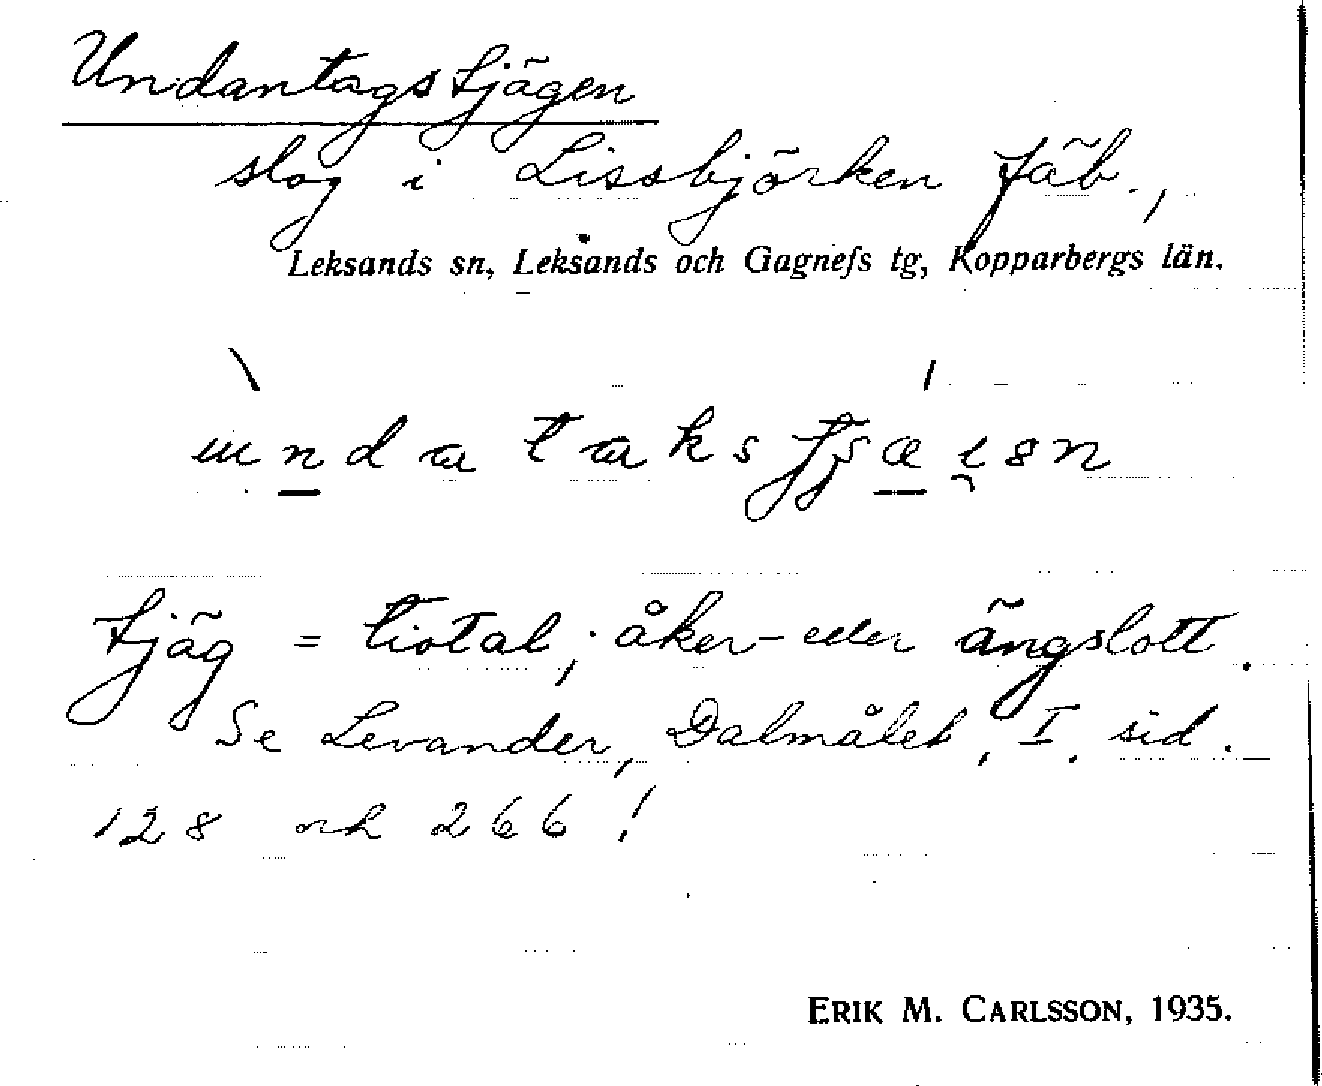 Undantagstjägen
slog i Lissbjörken fäb.,
Leksands sn, Leksands och Gagnefs tg, Kopparbergs län.
tjäg = tiotal; åker- eller ängslott.
Se Levander, Dalmålet, I. sid.
128 och 266!
ERIK M. CARLSSON, 1935.